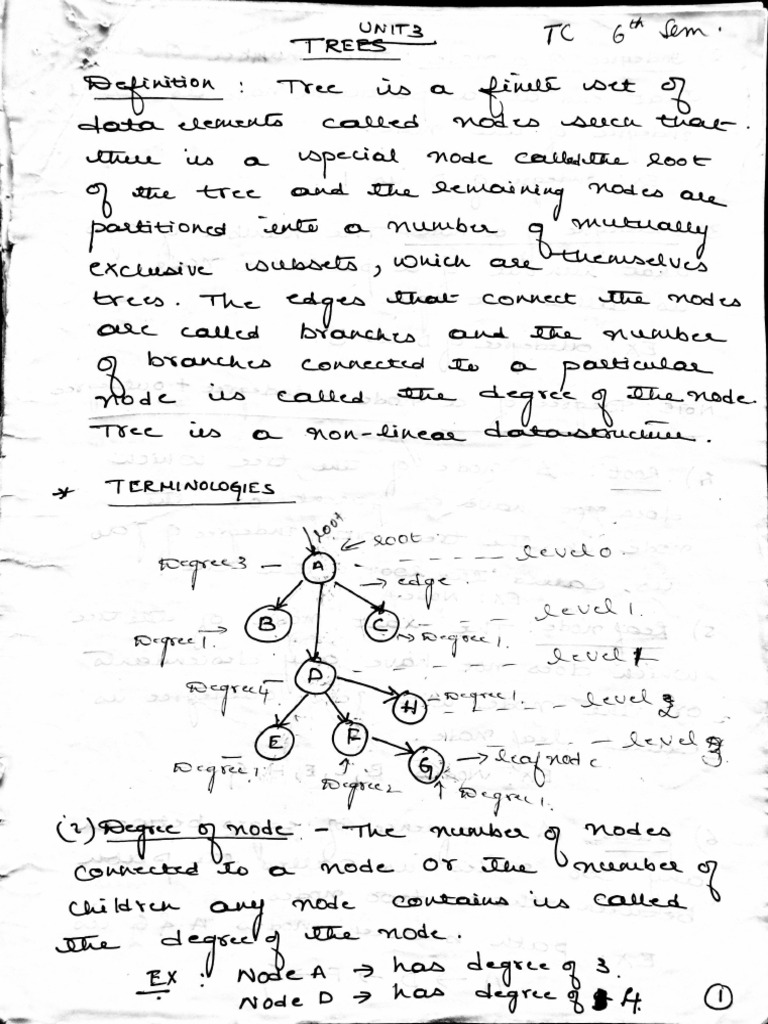 UNIT 3
TREES
TC 6th Sem.
Definition : Tree is a finite set of
data elements called nodes such that
there is a special node called the root
of the tree and the remaining nodes are
partitioned into a number of mutually
exclusive subsets, which are themselves
trees. The edges that connect the nodes
are called branches and the number
of branches connected to a particular
node is called the degree of the node.
Tree is a non-linear data structure.
* TERMINOLOGIES
root
root
level 0
Degree 3
A
edge
level 1.
B
C
Degree 1.
Degree 1.
level 1
D
Degree 4
H
Degree 1.
level 2
E
F
level 3
G
leaf node
Degree 1
Degree 2
Degree 1.
(2) Degree of node - The number of nodes
connected to a node or the number of
children any node contains is called
the degree of the node.
EX : Node A → has degree of 3.
Node D → has degree of 4.
1